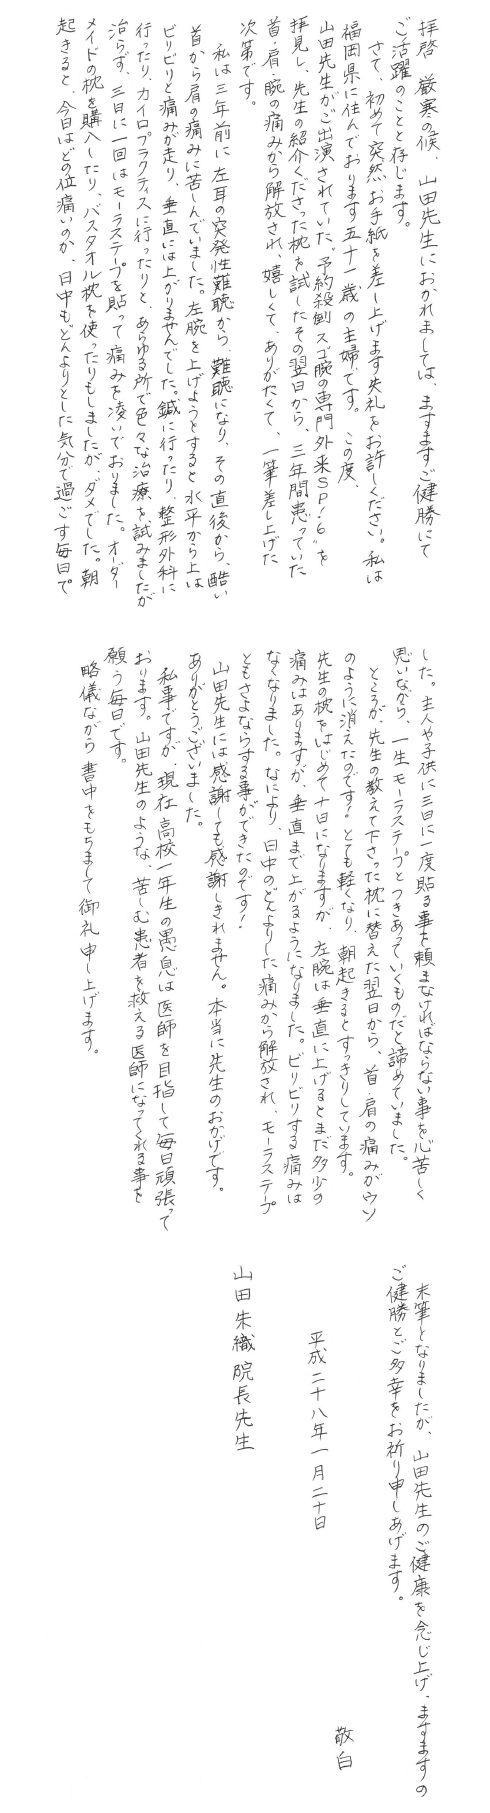 拝啓　厳寒の候、山田先生におかれましては、ますますご健勝にて
ご活躍のことと存じます。
さて、初めて突然お手紙を差し上げます失礼をお許しください。私は
福岡県に住んでおります五十一歳の主婦です。この度、
山田先生がご出演されていた、予約殺到スゴ腕の専門外来SP!6"を
拝見し、先生の紹介くださった枕を試したその翌日から、三年間患っていた
首・肩・腕の痛みから解放され、嬉しくて、ありがたくて、一筆差し上げた
次第です。
私は三年前に左耳の突発性難聴から、難聴になり、その直後から、酷い
首から肩の痛みに苦しんでいました。左腕を上げようとすると水平から上は
ビリビリと痛みが走り、垂直には上がりませんでした。鍼に行ったり、整形外科に
行ったり、カイロプラクティスに行ったりと、あらゆる所で色々な治療を試みましたが
治らず、三日に一回はモーラステープを貼って痛みを凌いでおりました。オーダー
メイドの枕を購入したり、バスタオル枕を使ったりもしましたが、ダメでした。朝
起きると、今日はどの位痛いのか、日中もどんよりとした気分で過ごす毎日で
した。主人や子供に三日に一度貼る事を頼まなければならない事を心苦しく
思いながら、一生モーラステープとつきあっていくものだと諦めていました。
ところが、先生の教えて下さった枕に替えた翌日から、首・肩の痛みがウソ
のように消えたのです!とても軽くなり、朝起きるとすっきりしています。
先生の枕をはじめて十日になりますが、左腕は垂直に上げるとまだ多少の
痛みはありますが、垂直まで上がるようになりました。ビリビリする痛みは
なくなりました。なにより、日中のどんよりした痛みから解放され、モーラステープ
ともさよならする事ができたのです!
山田先生には感謝しても感謝しきれません。本当に先生のおかげです。
ありがとうございました。
私事ですが、現在高校一年生の愚息は医師を目指して毎日頑張って
おります。山田先生のような、苦しむ患者を救える医師になってくれる事を
願う毎日です。
略儀ながら書中をもちまして御礼申し上げます。
末筆となりましたが、山田先生のご健康を念じ上げ、ますますの
ご健勝とご多幸をお祈り申しあげます。
敬白
平成二十八年一月二十日
山田朱織院長先生